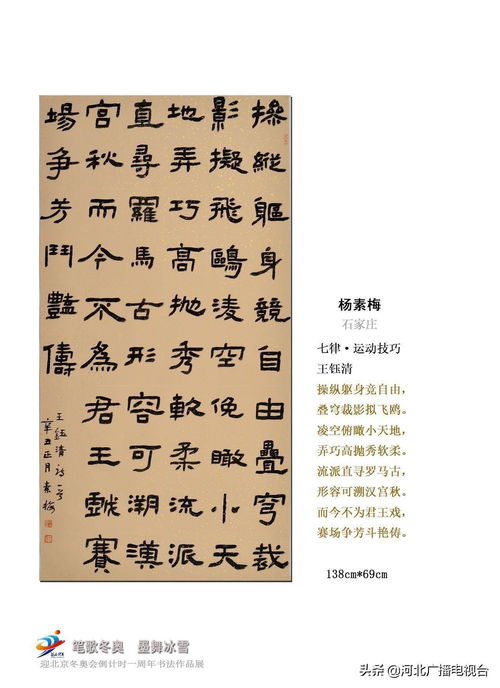 操縱軀身競自由疊穹裁
影擬飛鷗淩空俛瞰小天
地弄巧高抛秀軟柔流派
直尋羅馬古形容可溯漢
宮秋而今不為君王戲賽
場争芳鬥豔儔
王鈺清詩一首
辛丑正月素梅
杨素梅
石家庄
七律·运动技巧
王钰清
操纵躯身竞自由，
叠穹裁影拟飞鸥。
凌空俯瞰小天地，
弄巧高抛秀软柔。
流派直寻罗马古，
形容可溯汉宫秋。
而今不为君王戏，
赛场争芳斗艳俦。
138cm*69cm
笔歌冬奥 墨舞冰雪
迎北京冬奥会倒计时一周年书法作品展
头条 @河北广播电视台